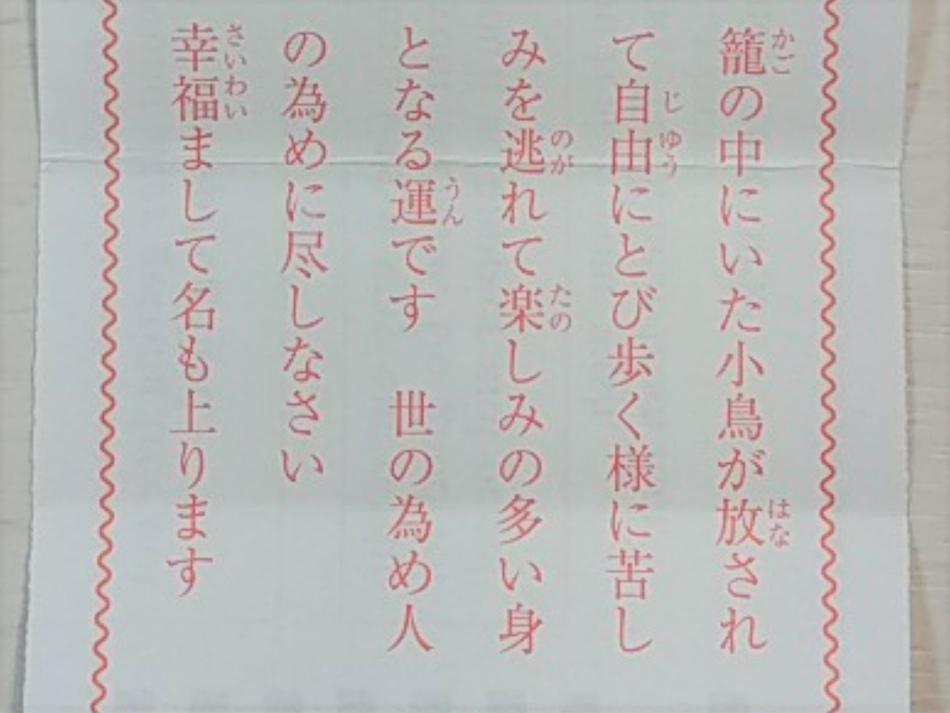 籠の中にいた小鳥が放され
て自由にとび歩く様に苦し
みを逃れて楽しみの多い身
となる運です　世の為め人
の為めに尽しなさい
幸福まして名も上ります
かご
はな
じゆう
のが
たの
うん
さいわい